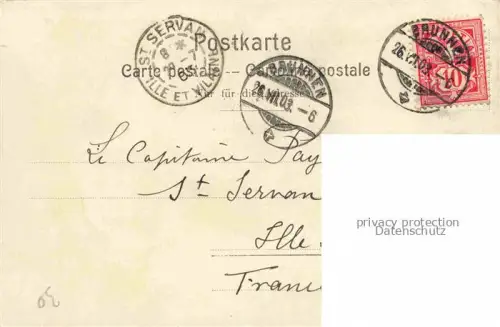 Postkarte
Carte postale. — Cartolina postale
Nur für die Adresse
ST SERVAN
8
ILLE ET VIL
BRUNNEN
26.VII.03.-6
BRUNNEN
26.VII.03.
10
Le Capitaine Pay
St Servan
Ille
France
privacy protection
Datenschutz